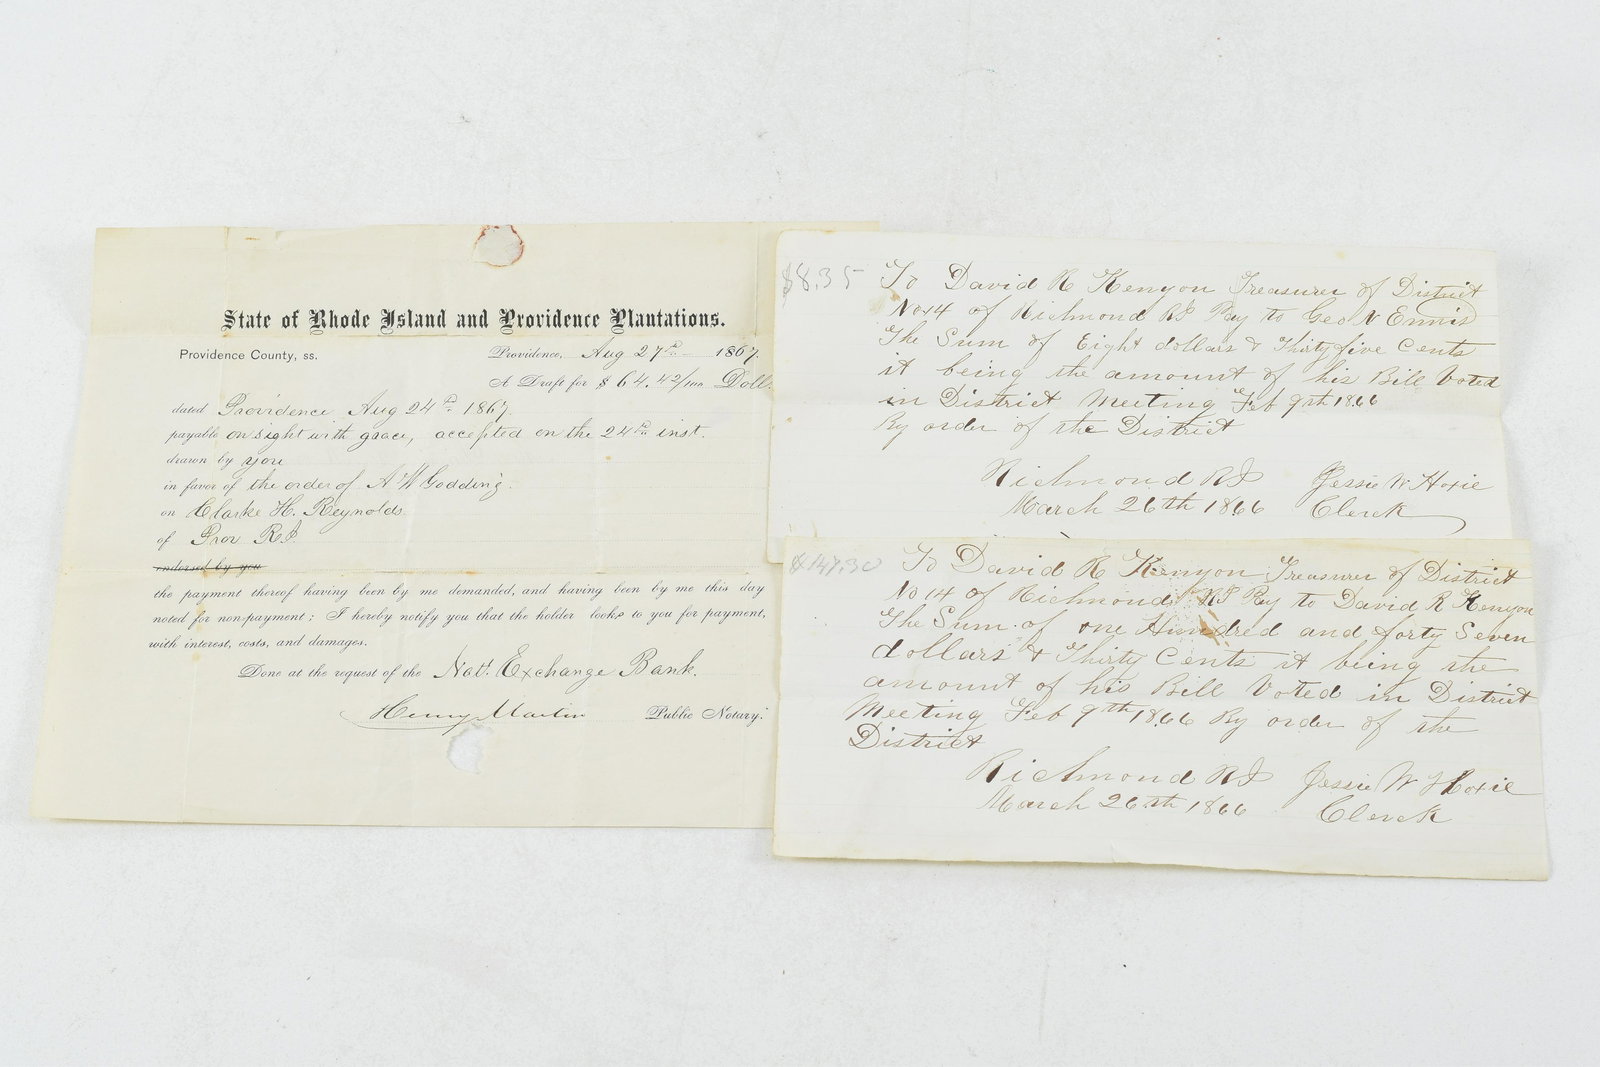 State of Rhode Island and Providence Plantations.
Providence County, ss.
Providence, Aug 27th 1867.
A Draft for $ 64.42/100 Doll
dated Providence Aug 24th 1867.
payable on sight with grace, accepted on the 24th inst.
drawn by you
in favor of the order of A W Godding.
on Clarke H. Reynolds
of Prov RI.
endorsed by you
the payment thereof having been by me demanded, and having been by me this day
noted for non-payment; I hereby notify you that the holder looks to you for payment,
with interest, costs, and damages.
Done at the request of the Natl. Exchange Bank.
Henry Martin Public Notary.
$8.35
To David R Kenyon Treasurer of District
No 14 of Richmond RI Pay to Geo N Ennis
The Sum of Eight dollars & Thirty five Cents
it being the amount of his Bill Voted
in District Meeting Feb 9th 1866
By order of the District
Richmond RI Jessie W Hoxie
March 26th 1866 Clerck
$147.30
To David R Kenyon Treasurer of District
No 14 of Richmond RI Pay to David R Kenyon
The Sum of one Hundred and forty Seven
dollars & Thirty Cents it being the
amount of his Bill Voted in District
Meeting Feb 9th 1866 By order of the
District
Richmond RI Jessie W Hoxie
March 26th 1866 Clerck